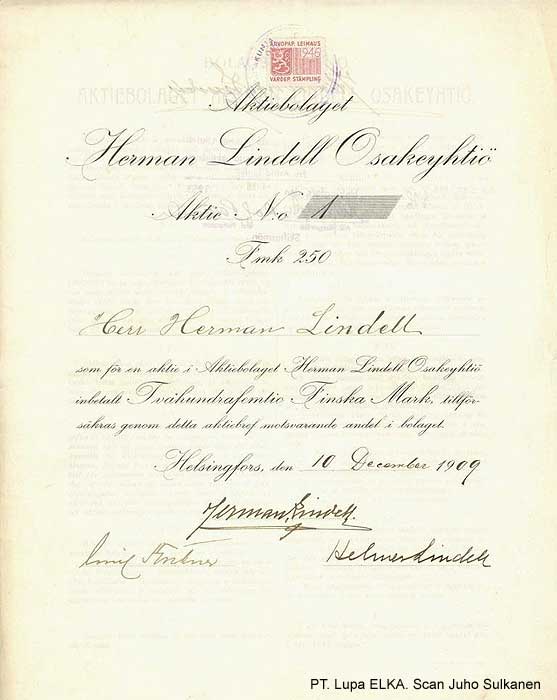 ARVOPAP. LEIMAUS
1946
VARDEP. STÄMPLING
Aktiebolaget
Herman Lindell Osakeyhtiö
Aktie N:o 1
Fmk 250
Herr Herman Lindell
som för en aktie i Aktiebolaget Herman Lindell Osakeyhtiö
inbetalt Tvåhundrafemtio Finska Mark, tillför-
säkras genom detta aktiebref motsvarande andel i bolaget.
Helsingfors, den 10 December 1909
Herman Lindell.
Emil
Helmer Lindell
PT. Lupa ELKA. Scan Juho Sulkanen